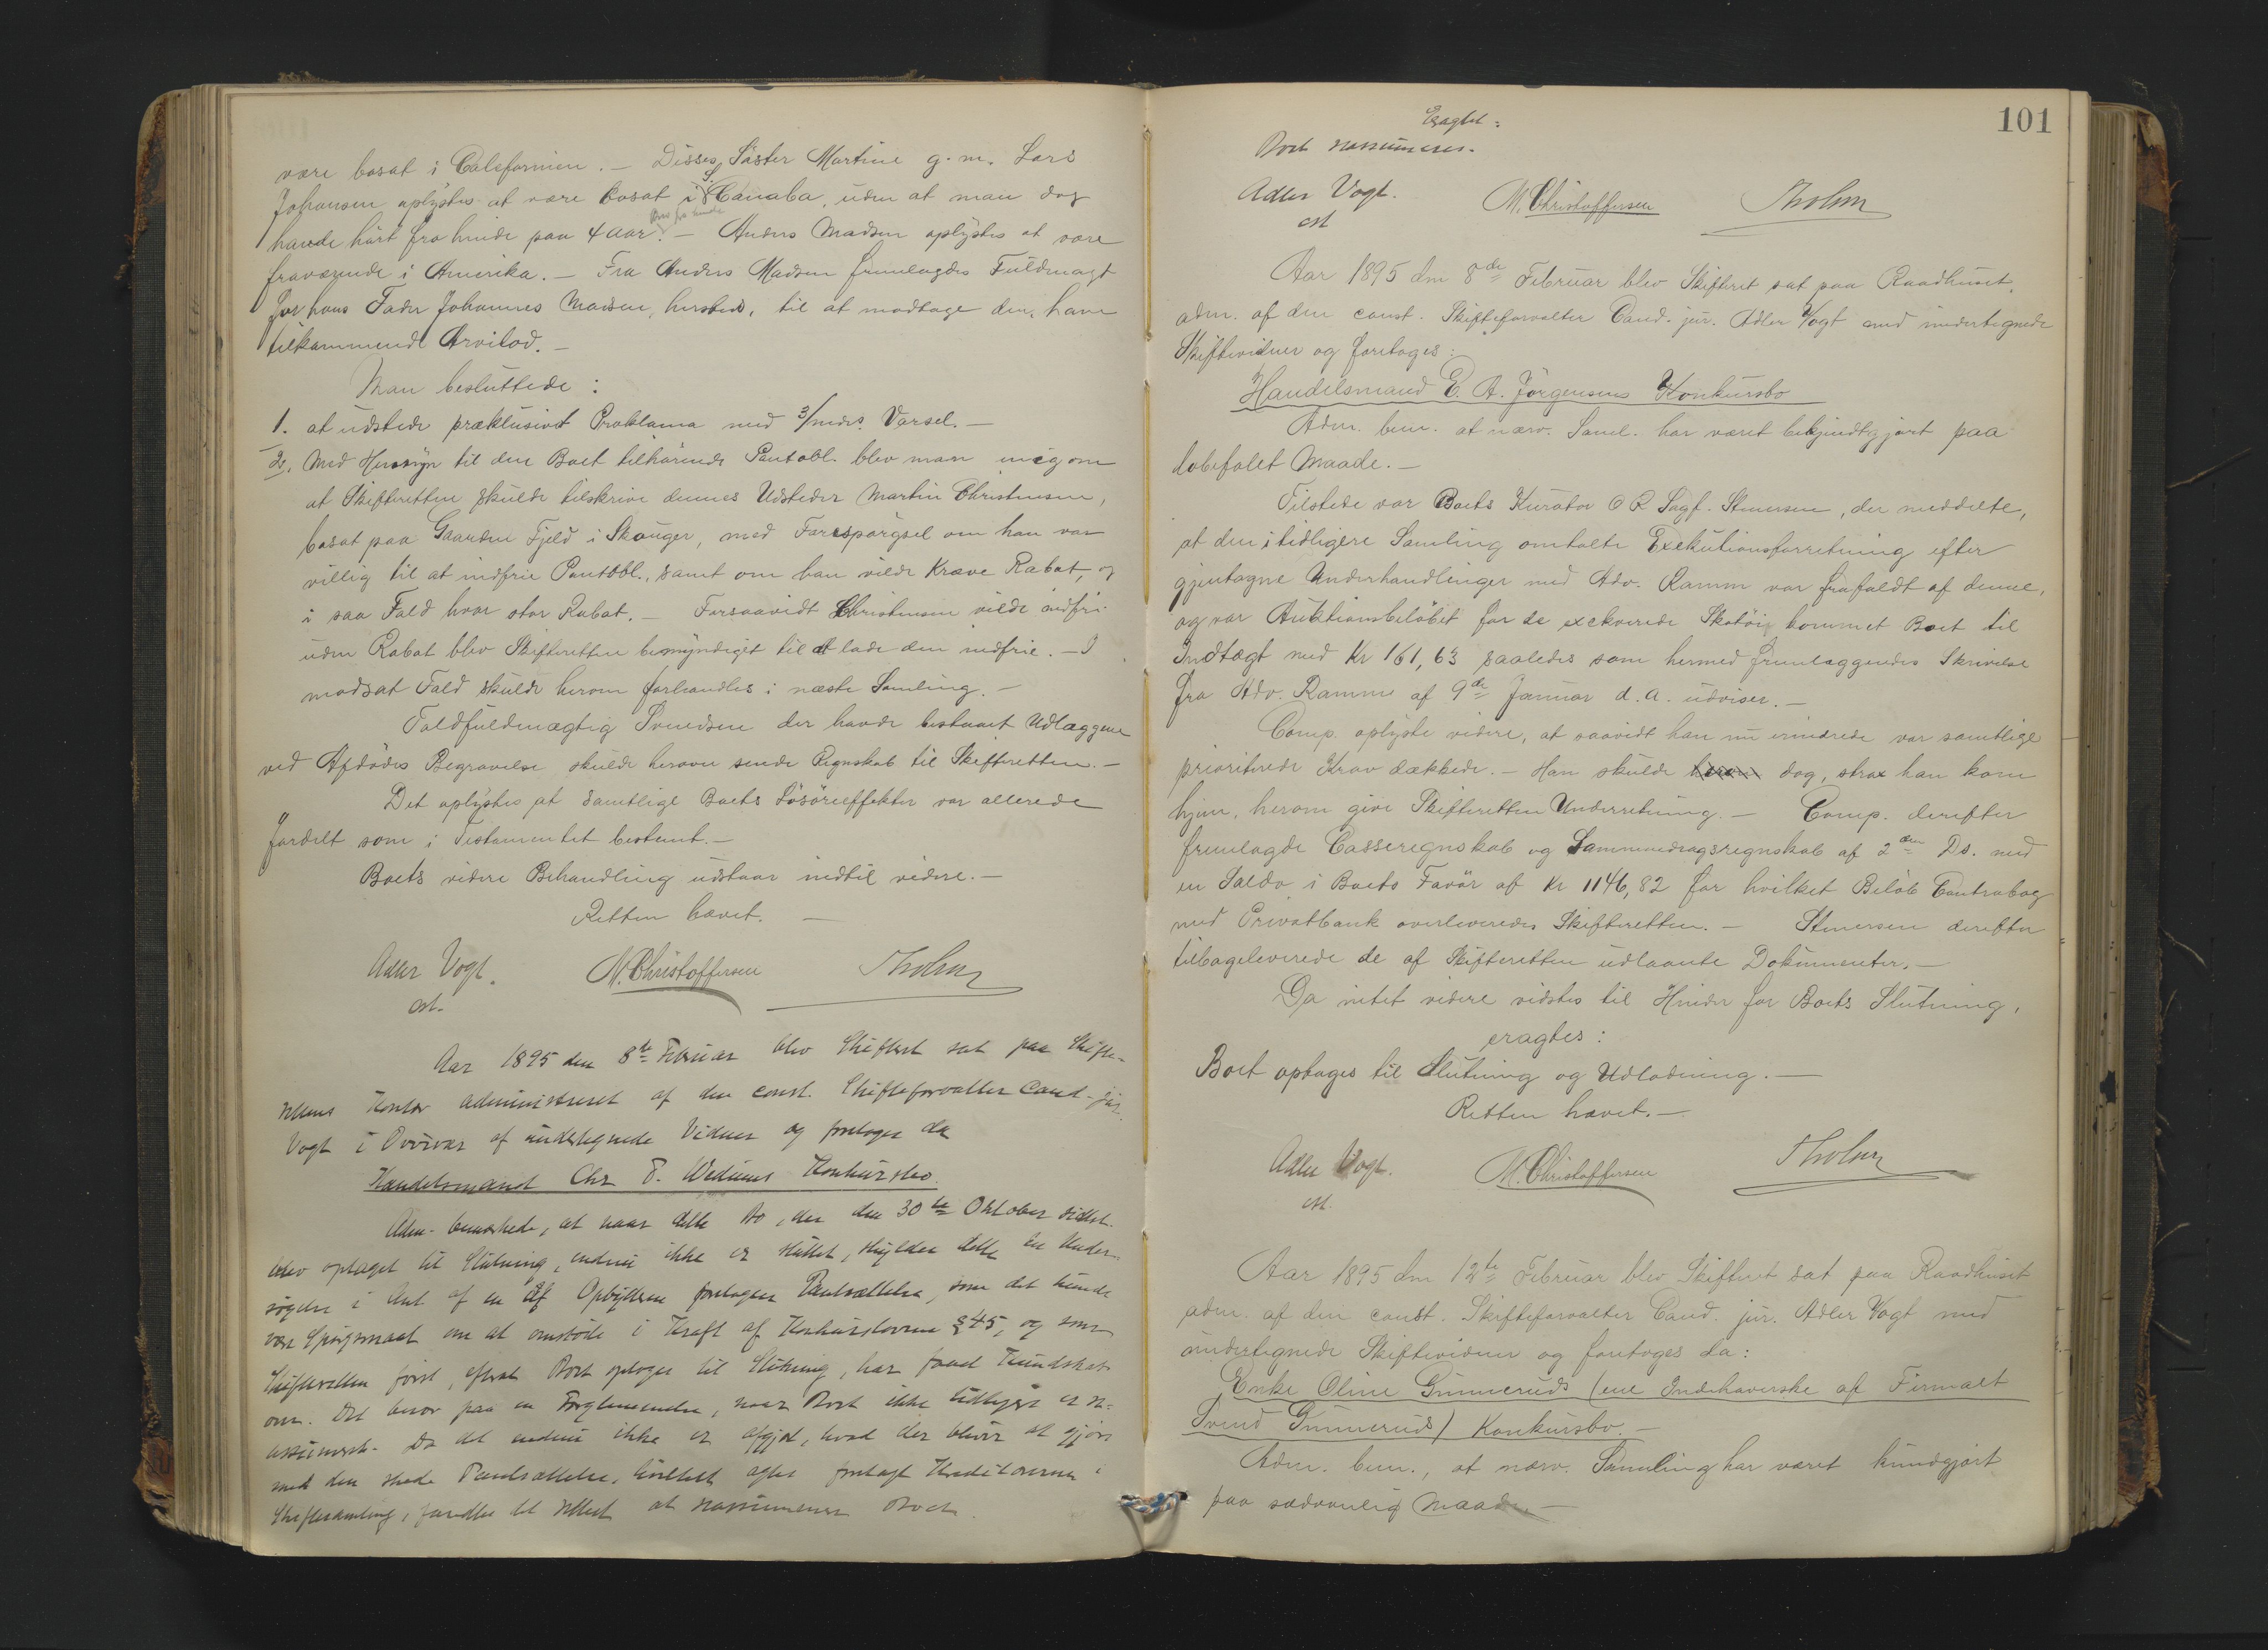 være bosat i Calefornien. — Disses Söster Martine g. m. Lars
Johansen oplystes at være bosat i Canaba, uden at man dog
havde hört fra hende paa 4 aar. — Anders Madsen oplystes at være
fraværende i Amerika. — Fra Anders Madsen fremlagdes Fuldmagt
for hans Fader Johannes Madsen, hersteds, til at modtage den ham
tilkommende Arvelod. —
Man besluttede:
1. at udstede præklusivt Proklama med 3/mdrs. Varsel. —
2. Med Hensyn til den Boet tilhörende Pantobl. blev man enig om
at Skifteretten skulde tilskrive dennes Udsteder Martin Christensen,
bosat paa Gaarden Fjeld i Skouger, med Forespörgsel om han var
villig til at indfrie Pantobl., samt om han vilde kræve Rabat, og
i saa Fald hvor stor Rabat. — Forsaavidt Christensen vilde indfri
uden Rabat blev Skifteretten bemyndiget til at lade den indfrie. — I
modsat Fald skulde herom forhandles i næste Samling. —
Toldfuldmægtig Svendsen der havde bestaaet Udlæggene
ved Afdödes Begravelse skulde herover sende Regnskab til Skifteretten. —
Det oplystes at samtlige Boets Lösöreeffekter var allerede
fordelt som i Testamentet bestemt. —
Boets videre Behandling udstaar indtil videre. —
Retten hævet. —
Adler Vogt. M. Christoffersen Tholm
cst.
Aar 1895 den 8de Februar blev Skifteret sat paa Skifte-
rettens Kontor administreret af den const. Skifteforvalter Cand. jur.
Vogt i Overvær af undertegnede Vidner og foretoges da
Handelsmand Chr. Konkursbo.
Adm. bemærkede, at naar dette Bo, der den 30te Oktober sidstl.
blev optaget til Slutning, endnu ikke er sluttet, skyldes dette en Under-
sögelse i Anl. af en af Opbyderen foretagen Pantsættelse, som det kunde
være Spörgsmaal om at omstöde i Kraft af Konkurslovens § 45, og som
Skifteretten först, efterat Boet optoges til Slutning, har faaet Kundskab
om. Det beror paa en Forglemmelse, naar Boet ikke tidligere er re-
assumeret. Da det endnu ikke er afgjort, hvad der bliver at gjöre
med den skede Pantsættelse, hvilket agtes forelagt Kreditorerne i
Skiftesamling, fandtes det rettest at reassumere Boet
101
Eragtet:
Boet reassumeres.
Adler Vogt. M. Christoffersen Tholm
cst
Aar 1895 den 8de Februar blev Skifteret sat paa Raadhuset,
adm. af den const. Skifteforvalter Cand. jur. Adler Vogt med undertegnede
Skiftevidner og foretoges:
Handelsmand E. A. Jörgensens Konkursbo
Adm. bem. at nærv. Saml. har været bekjendtgjort paa
lovbefalet Maade. —
Tilstede var Boets Kurator O R Sagf. Stenersen, der meddelte,
at den i tidligere Samling omtalte Exekutionsforretning efter
gjentagne Underhandlinger med Adv. Ramm var frafaldt af denne,
og var Auktionsbelöbet for de exekverede Skotöi kommet Boet til
Indtægt med Kr 161,63 saaledes som hermed fremlæggendes Skrivelse
fra Adv. Ramm af 9de Januar d. a. udviser. —
Comp. oplyste videre, at saavidt han nu erindrede var samtlige
prioriterede Krav dækkede. — Han skulde dog, strax han kom
hjem, herom give Skifteretten Underretning. — Comp. derefter
fremlagde Casseregnskab og Sammendragsregnskab af 2den Ds. med
en Saldo i Boets Favör af Kr 1146,82 for hvilket Belöb Contrabog
med Privatbank overleveredes Skifteretten. — Stenersen derefter
tilbageleverede de af Skifteretten udlaante Dokumenter. —
Da intet videre vidstes til Hinder for Boets Slutning,
eragtes:
Boet optages til Slutning og Udlodning. —
Retten hævet. —
Adler Vogt. M. Christoffersen Tholm
cst.
Aar 1895 den 12te Februar blev Skifteret sat paa Raadhuset
adm. af den const. Skifteforvalter Cand. jur. Adler Vogt med
undertegnede Skiftevidner og foretoges da:
Enke Oline Gunneruds (ene Indehaverske af Firmaet
Svend Gunnerud) Konkursbo. —
Adm. bem., at nærv. Samling har været kundgjort
paa sædvanlig Maade —